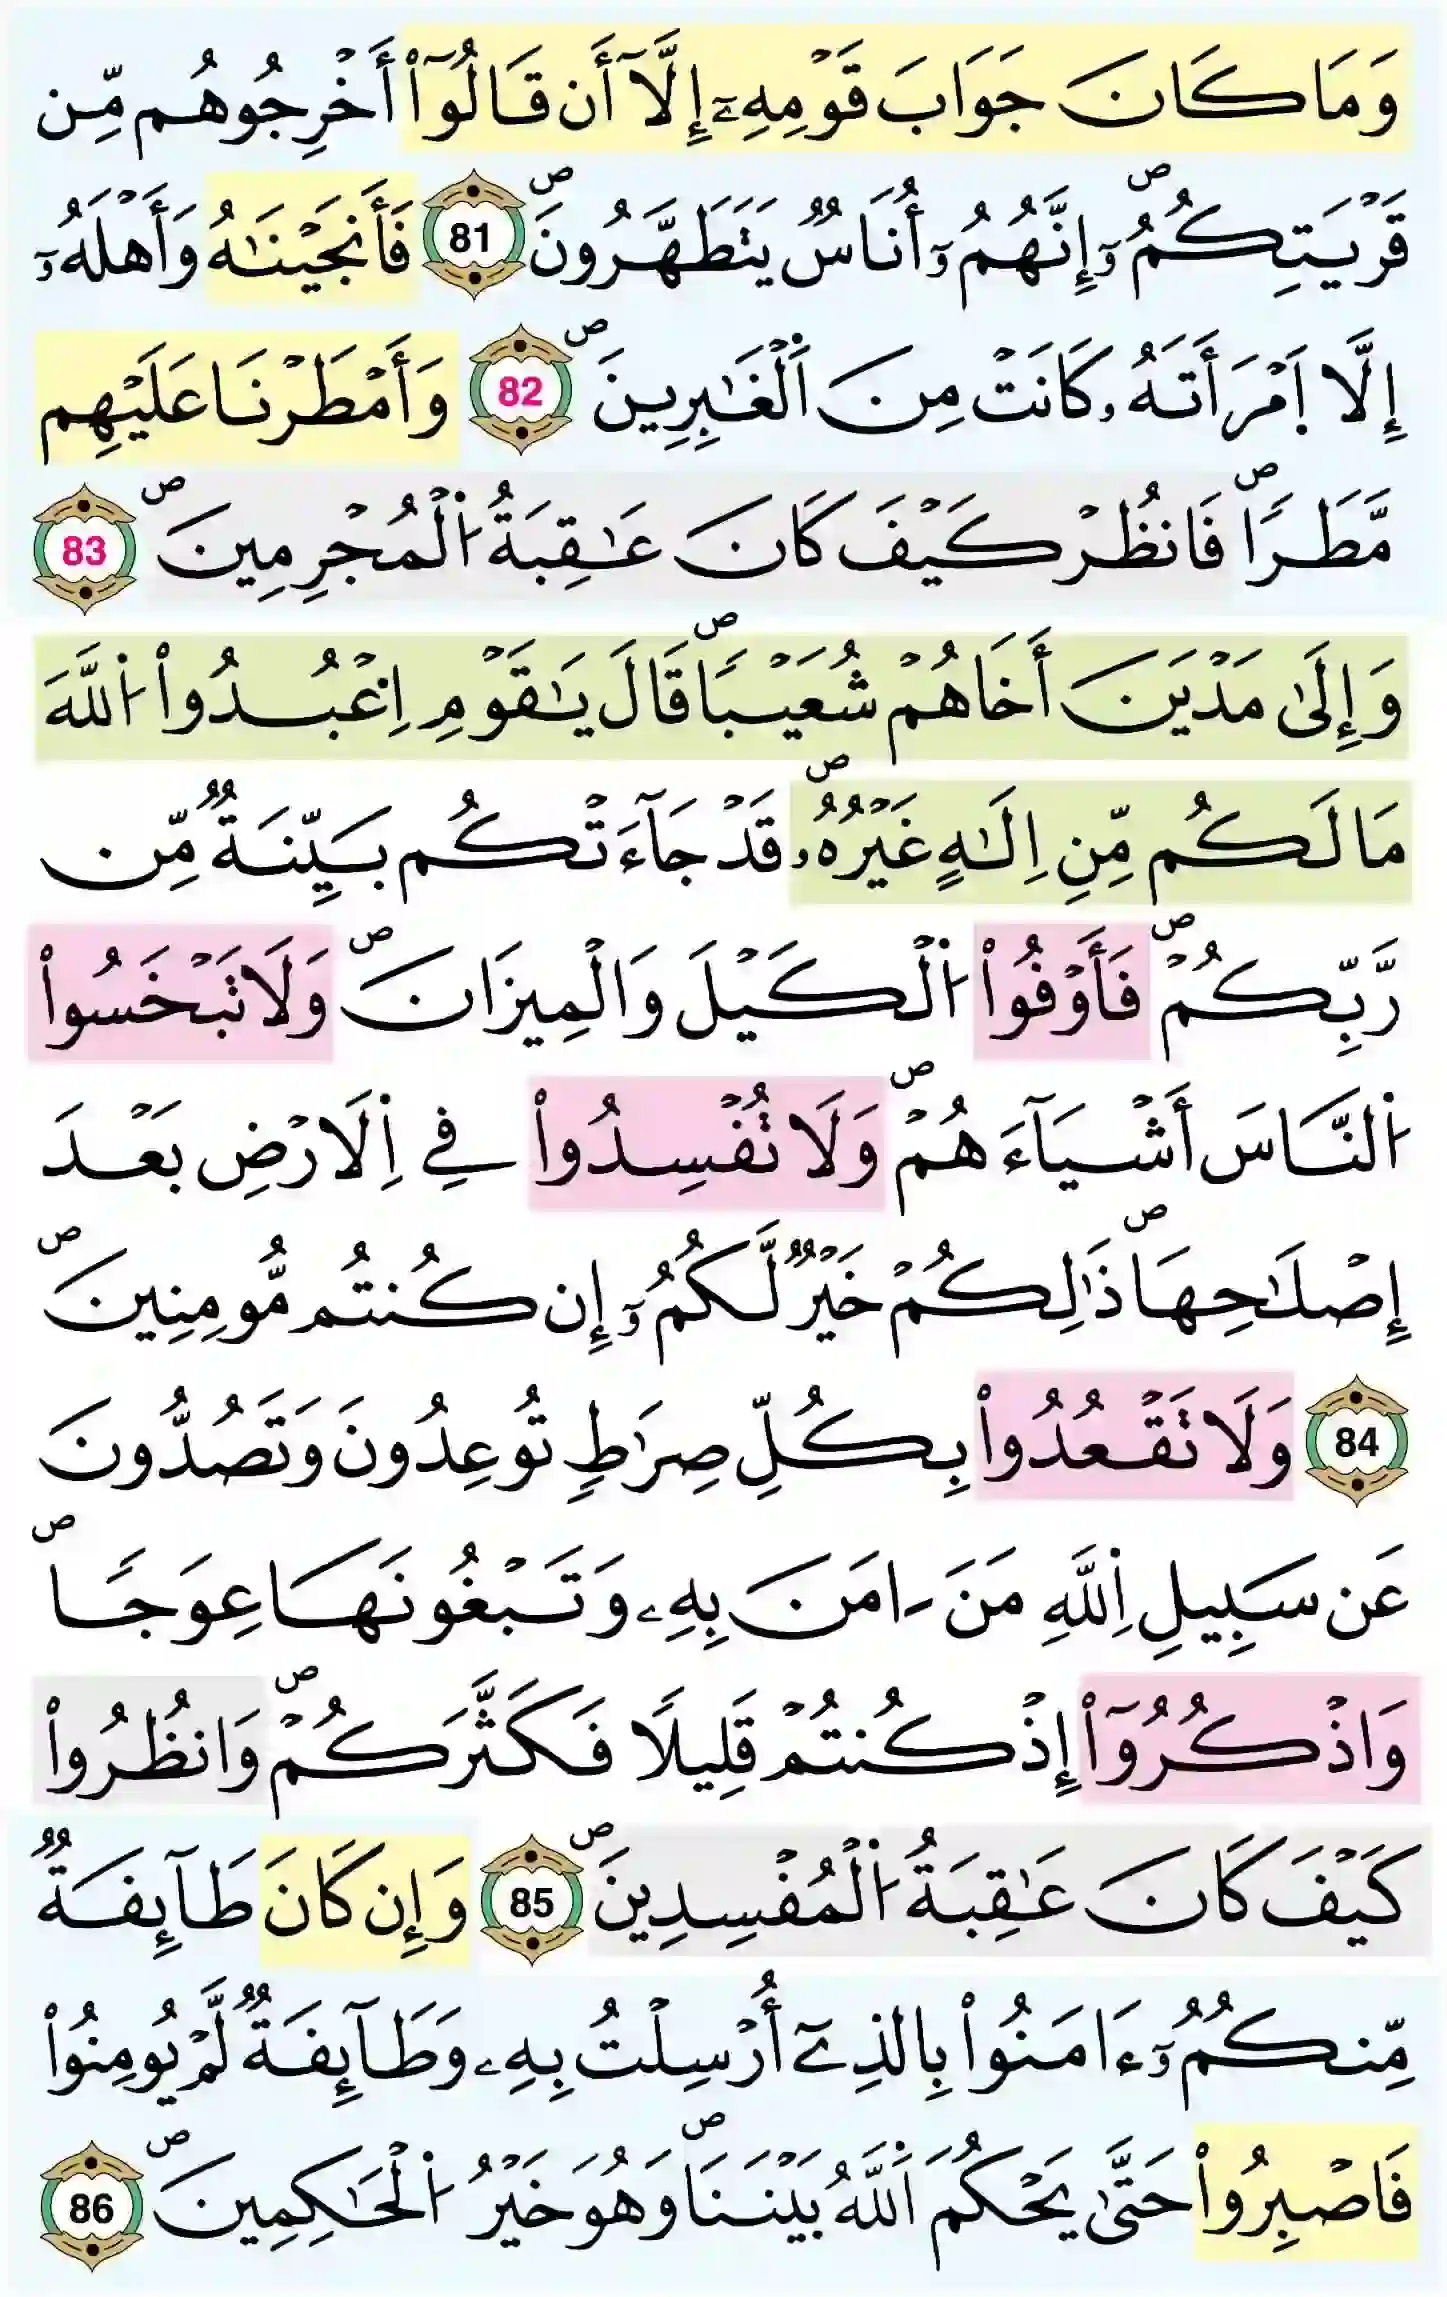 وَمَا كَانَ جَوَابَ قَوْمِهِۦٓ إِلَّآ أَن قَالُوٓاْ أَخْرِجُوهُم مِّن
قَرْيَتِكُمُۥٓۖ إِنَّهُمُۥٓ أُنَاسٌ يَتَطَهَّرُونَۖ 81 فَأَنجَيْنَٰهُ وَأَهْلَهُۥٓ
إِلَّا اَمْرَأَتَهُۥ كَانَتْ مِنَ اَ۬لْغَٰبِرِينَۖ 82 وَأَمْطَرْنَا عَلَيْهِم
مَّطَراٗۖ فَانظُرْ كَيْفَ كَانَ عَٰقِبَةُ اُ۬لْمُجْرِمِينَۖ 83
وَإِلَىٰ مَدْيَنَ أَخَاهُمْ شُعَيْباٗۖ قَالَ يَٰقَوْمِ اِ۟عْبُدُواْ اُ۬للَّهَ
مَا لَكُم مِّنِ اِلَٰهٍ غَيْرُهُۥۖ قَدْ جَآءَتْكُم بَيِّنَةٞ مِّن
رَّبِّكُمْۖ فَأَوْفُواْ اُ۬لْكَيْلَ وَالْمِيزَانَۖ وَلَا تَبْخَسُواْ
اُ۬لنَّاسَ أَشْيَآءَهُمْۖ وَلَا تُفْسِدُواْ فِے اِ۬لَارْضِ بَعْدَ
إِصْلَٰحِهَاۖ ذَٰلِكُمْ خَيْرٞ لَّكُمُۥٓ إِن كُنتُم مُّومِنِينَۖ
84 وَلَا تَقْعُدُواْ بِكُلِّ صِرَٰطٖ تُوعِدُونَ وَتَصُدُّونَ
عَن سَبِيلِ اِ۬للَّهِ مَنَ اٰمَنَ بِهِۦ وَتَبْغُونَهَا عِوَجاٗۖ
وَاذْكُرُوٓاْ إِذْ كُنتُمْ قَلِيلاٗ فَكَثَّرَكُمْۖ وَانظُرُواْ
كَيْفَ كَانَ عَٰقِبَةُ اُ۬لْمُفْسِدِينَۖ 85 وَإِن كَانَ طَآئِفَةٞ
مِّنكُمُۥٓ ءَامَنُواْ بِالذِےٓ أُرْسِلْتُ بِهِۦ وَطَآئِفَةٞ لَّمْ يُومِنُواْ
فَاصْبِرُواْ حَتَّىٰ يَحْكُمَ اَ۬للَّهُ بَيْنَنَاۖ وَهُوَ خَيْرُ اُ۬لْحَٰكِمِينَۖ 86